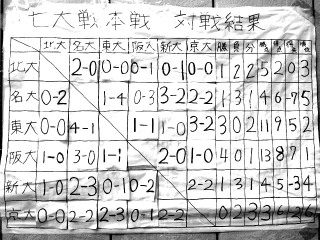 七大戦本戦 対戦結果
北大 名大 東大 阪大 新大 京大 勝 負 分
北大 2-0 0-0 0-1 0-1 0-0 1 2 2 5 2 0 3
名大 0-2 1-4 0-3 3-2 2-2 1 3 1 4 6 -7 5
東大 0-0 4-1 1-1 1-0 3-2 3 0 2 11 9 5 2
阪大 1-0 3-0 1-1 2-0 1-0 4 0 1 13 8 7 1
新大 1-0 2-3 0-1 0-2 2-2 1 3 1 4 5 -3 4
京大 0-0 2-2 2-3 0-1 2-2 0 2 3 3 6 -2 6